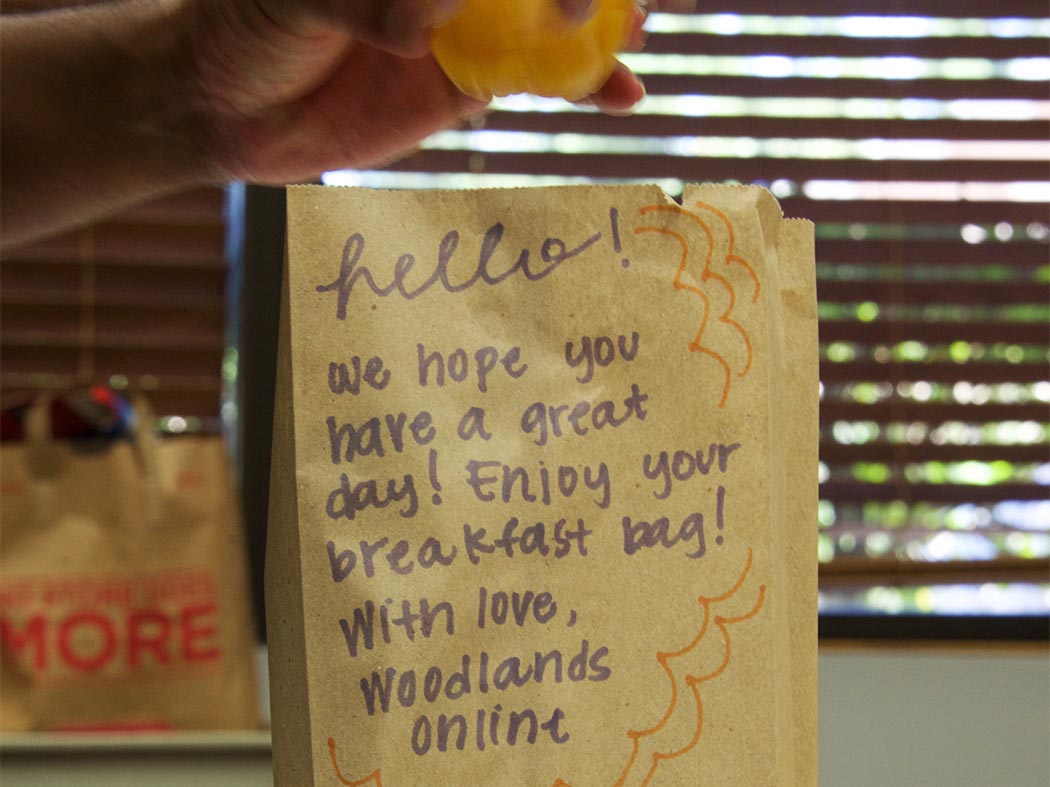 hello!
we hope you
have a great
day! Enjoy your
breakfast bag!
With love,
Woodlands
online
MORE